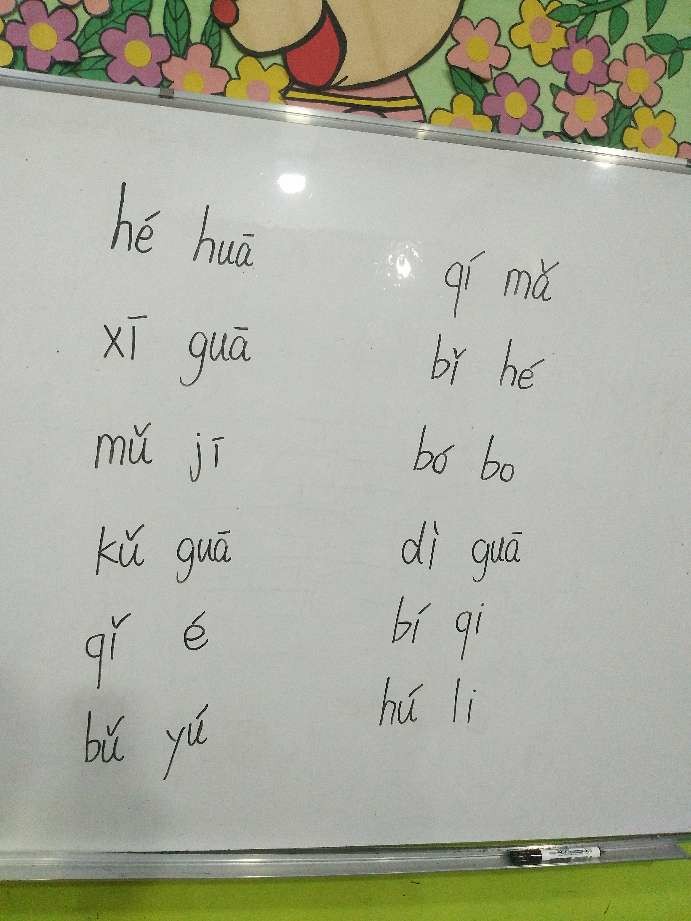 hé huā
xī guā
mǔ jī
kǔ guā
qǐ é
bǔ yú
qí mǎ
bǐ hé
bó bo
dì guā
bí qi
hú li